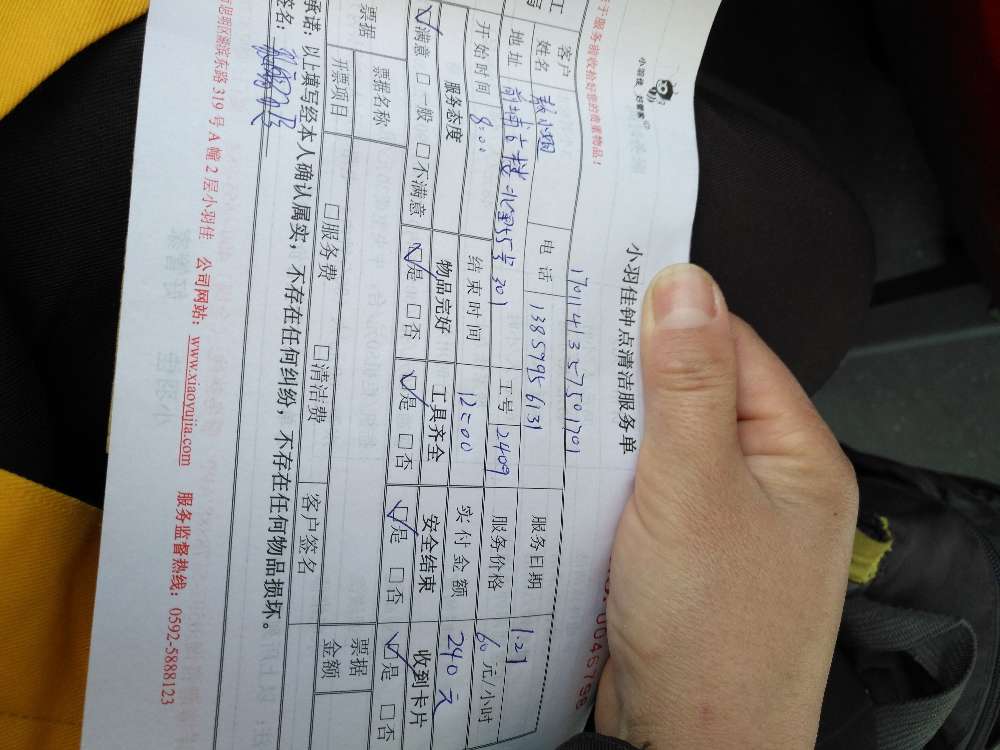 小羽佳 好管家
小羽佳钟点清洁服务单
于服务前收拾好您的贵重物品！
170114325750170
客户姓名 电话 13859956131 服务日期 1.27
地址 工号 2409 服务价格 60元/小时
开始时间 8:00 结束时间 12:00 实付金额 240元
服务态度 物品完好 工具齐全 安全结束 收到卡片
☑满意 □一般 □不满意 ☑是 □否 ☑是 □否 ☑是 □否 ☑是 □否
票据 票据名称 □服务费 □清洁费 票据金额
开票项目 客户签名
承诺：以上填写经本人确认属实，不存在任何纠纷，不存在任何物品损坏。
签名：
思明区湖滨东路 319 号 A 幢 2 层小羽佳 公司网站：www.xiaoyujia.com 服务监督热线：0592-5888123